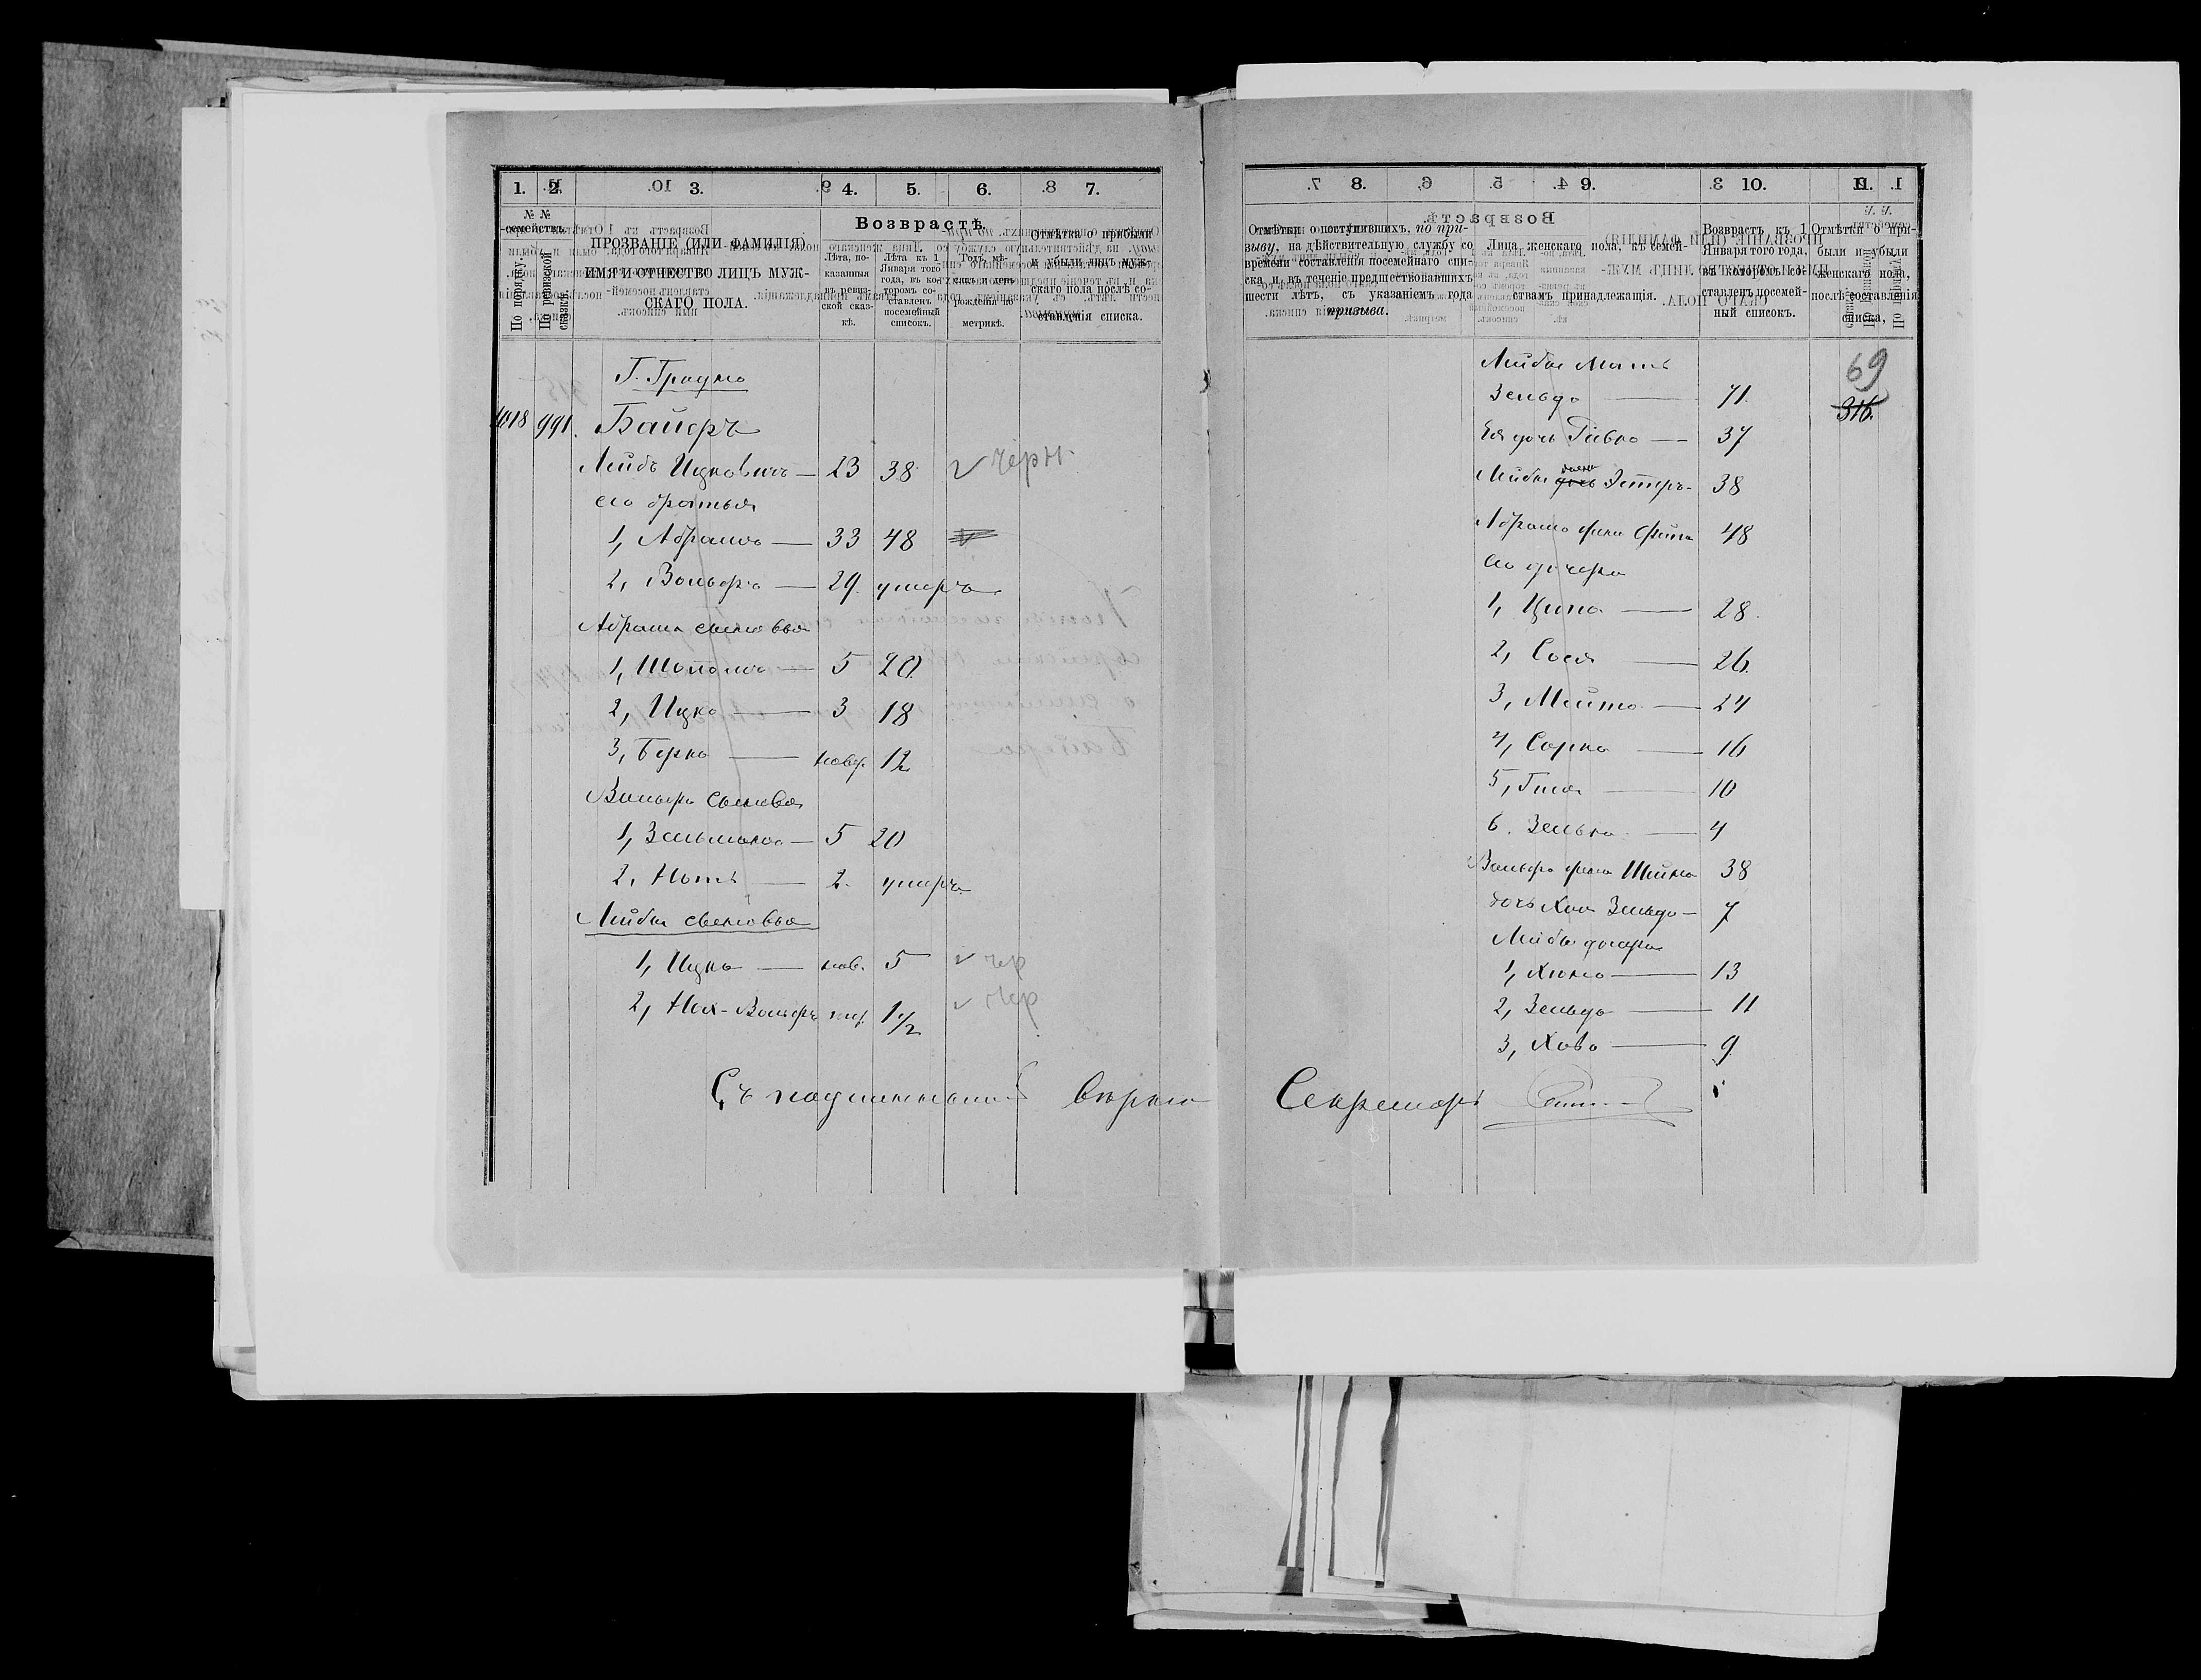 1. 2. 3. 4. 5. 6. 7.
№ №
семействъ.
По порядку.
По ревизской сказкѣ.
ПРОЗВАНІЕ (ИЛИ ФАМИЛІЯ)
ИМЯ И ОТЧЕСТВО ЛИЦЪ МУЖ-
СКАГО ПОЛА.
Возрастъ.
Лѣта, по-
казанныя
въ ревиз-
ской сказ-
кѣ.
Лѣта къ 1
Января того
года, въ ко-
торомъ со-
ставленъ
посемейный
списокъ.
Годъ, мѣ-
сяцъ и день
рожденія по
метрикѣ.
Отмѣтка о прибыли
и убыли лицъ муж-
скаго пола послѣ со-
ставленія списка.
Г. Гродно
1018 991. Байеръ
Лейбъ Ицковичъ — 23 38 черн.
его братья
1, Абрамъ — 33 48
2, Вольфъ — 29. умеръ
Абрама сыновья
1, Шоломъ — 5 20
2, Ицко — 3 18
3, Берко — новор. 12
Вольфа сыновья
1, Зельманъ — 5 20
2, Нотъ — 2. умеръ
Лейбы сыновья
1, Ицко — нов. 5 чер
2, Ной-Вольфъ нов. 1 1/2 чер
Съ подлиннымъ вѣрно
8. 9. 10. 11.
Отмѣтки о поступившихъ, по при-
зыву, на дѣйствительную службу со
времени составленія посемейнаго спи-
ска и въ теченіе предшествовавшихъ
шести лѣтъ, съ указаніемъ года
призыва.
Лица женскаго пола, къ семей-
ствамъ принадлежащія.
Возрастъ къ 1
Января того года,
въ которомъ со-
ставленъ посемей-
ный списокъ.
Отмѣтки о при-
были и убыли
женскаго пола,
послѣ составленія
списка,
69
316.
Лейбы мать
Зельда — 71.
Ея дочь Ривка — 37
Лейбы жена Эстеръ — 38
Абрама жена Фейга 48
его дочери
1, Ципа — 28.
2, Сося — 26.
3, Мейта — 24
4, Сорка — 16
5, Гися — 10
6. Зелька — 4
Вольфа жена Шейна 38
дочь Хая Зельда — 7
Лейбы дочери
1, Хюма — 13
2, Зельда — 11
3, Хава — 9
Секретарь